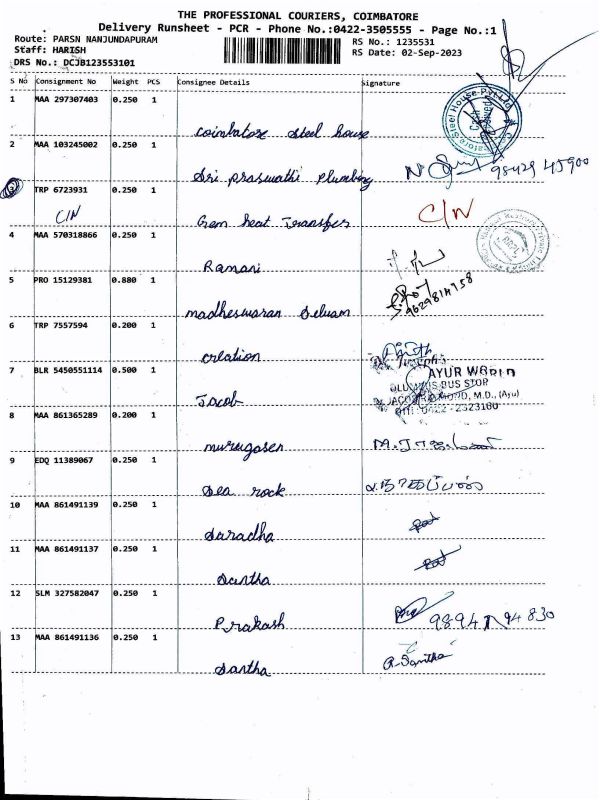 THE PROFESSIONAL COURIERS, COIMBATORE
Delivery Runsheet - PCR - Phone No.:0422-3505555 - Page No.:1
Route: PARSN NANJUNDAPURAM
RS No.: 1235531
Staff: HARISH
RS Date: 02-Sep-2023
DRS No.: DCJB123553101
S No Consignment No Weight PCS Consignee Details Signature
1 MAA 297307403 0.250 1
Coimbatore Steel house
2 MAA 103245002 0.250 1
Sri praswathi plumbing
98429 45900
3 TRP 6723931 0.250 1
C/N
Gem heat Transfer
C/N
4 MAA 570318866 0.250 1
Ramani
5 PRO 15129381 0.880 1
madheswaran Selvam
9629814758
6 TRP 7557594 0.200 1
creation
7 BLR 5450551114 0.500 1
AYUR WORLD
BUS STOP
M.D., (Ayu)
Jacob
8 MAA 861365289 0.200 1
murugasen
9 EDQ 11389067 0.250 1
Sea rock
10 MAA 861491139 0.250 1
Saradha
11 MAA 861491137 0.250 1
Santha
12 SLM 327582047 0.250 1
Prakash
13 MAA 861491136 0.250 1
Santha
R. Santha